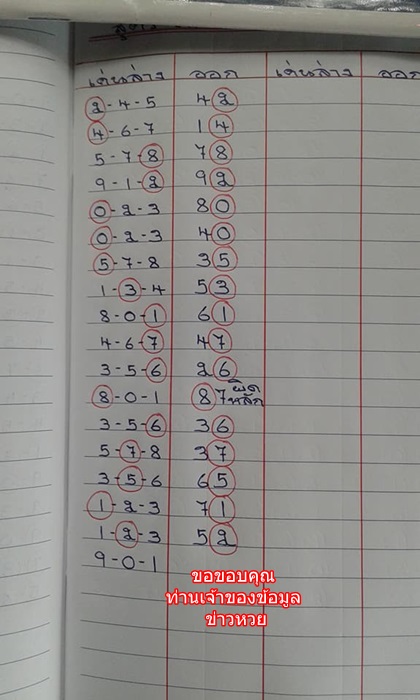 เด่นล่าง ออก เด่นล่าง ออก
2-4-5 42
4-6-7 14
5-7-8 78
9-1-2 92
0-2-3 80
0-2-3 40
5-7-8 35
1-3-4 53
8-0-1 61
4-6-7 47
3-5-6 26
8-0-1 87 ผิดหลัก
3-5-6 36
5-7-8 37
3-5-6 65
1-2-3 71
1-2-3 52
9-0-1
ขอขอบคุณ
ท่านเจ้าของข้อมูล
ข่าวหวย